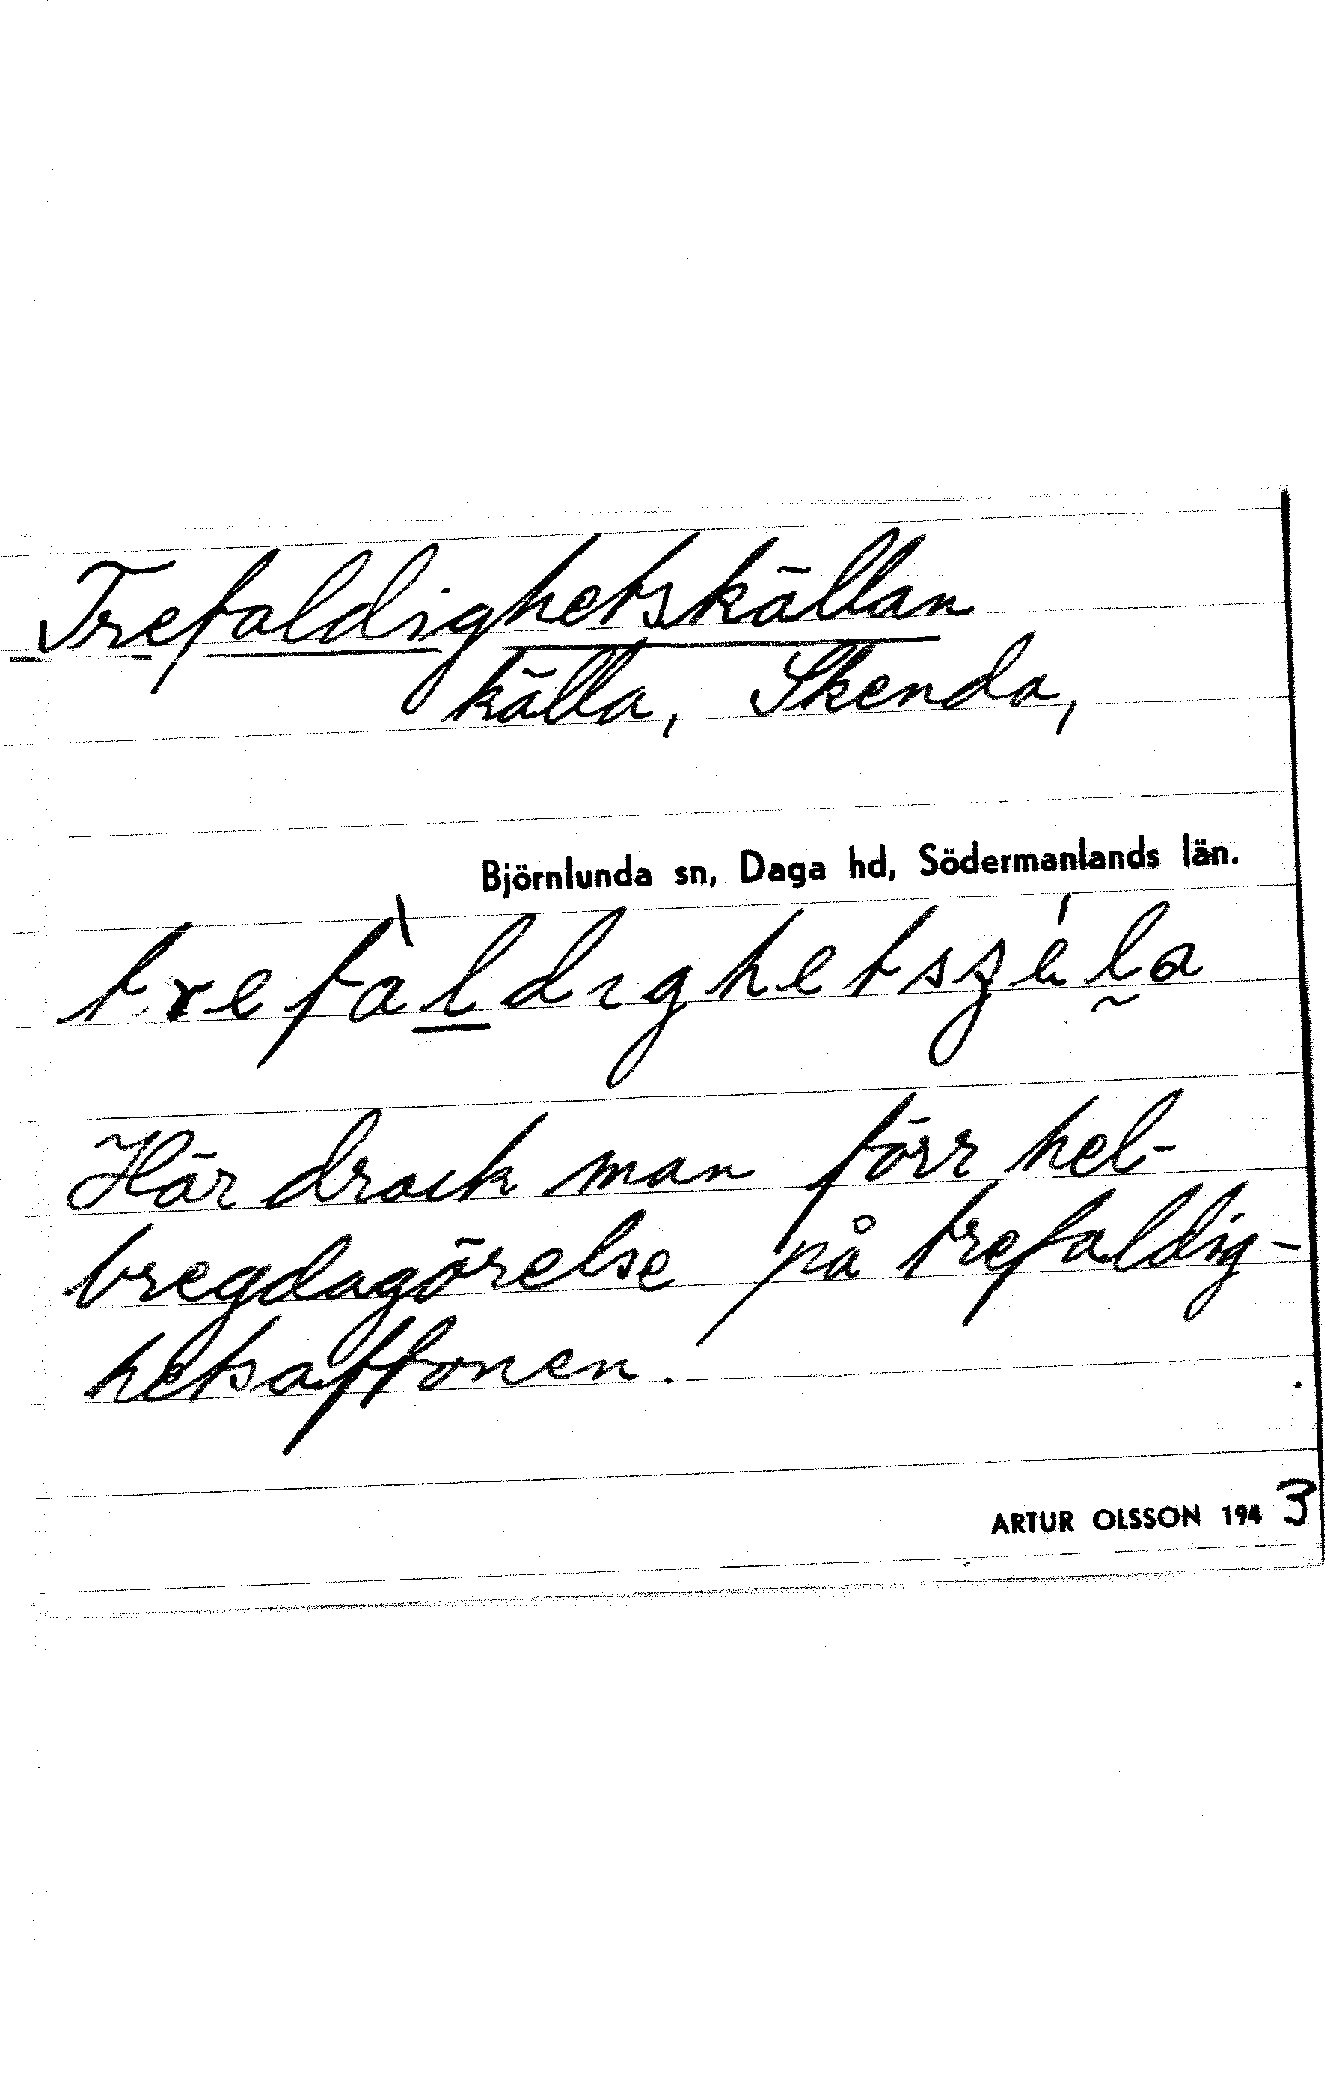 Trefaldighetskällan
källa, Skenda,
Björnlunda sn, Daga hd, Södermanlands län.
trefàldighetsʒéla
Här drack man förr hel-
bregdagörelse på trefaldig-
hetsaftonen.
ARTUR OLSSON 1943